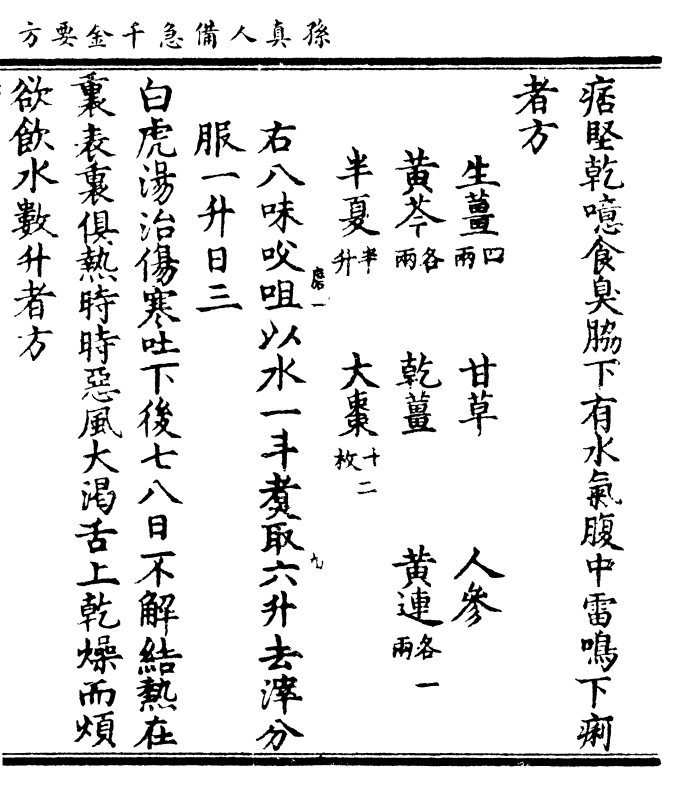 孫真人備急千金要方
痞堅乾噫食臭脇下有水氣腹中雷鳴下痢
者方
生薑四兩 甘草 人參
黃芩各兩 乾薑 黃連各一兩
半夏半升 大棗十二枚
右八味㕮咀以水一斗煑取六升去滓分
服一升日三
白虎湯治傷寒吐下後七八日不解結熱在
裏表裏俱熱時時惡風大渴舌上乾燥而煩
欲飲水數升者方